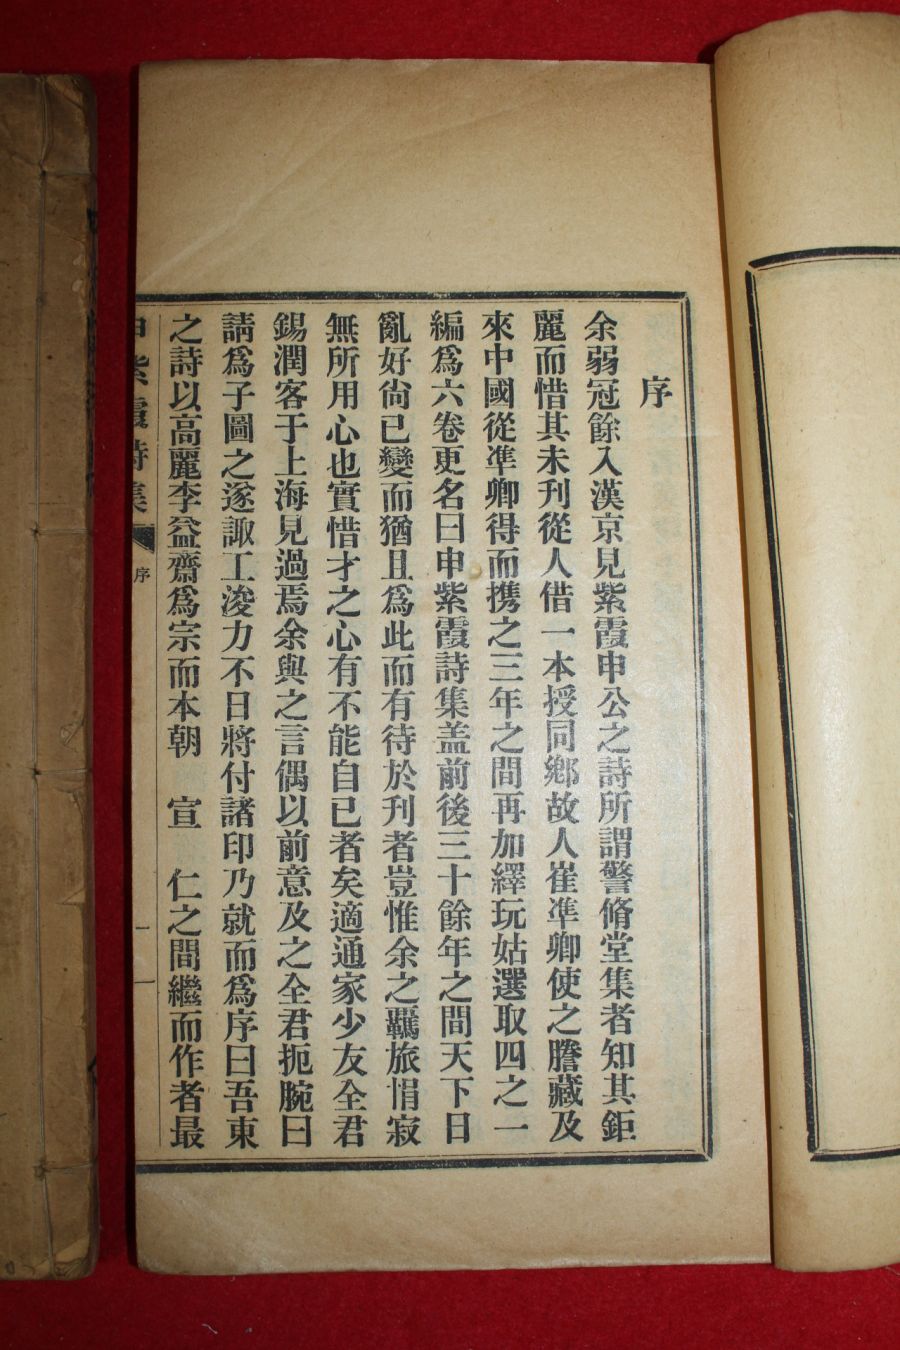 序
余弱冠餘入漢京見紫霞申公之詩所謂警脩堂集者知其鉅
麗而惜其未刊從人借一本授同鄉故人崔準卿使之謄藏及
來中國從準卿得而携之三年之間再加繹玩姑選取四之一
編爲六卷更名曰申紫霞詩集盖前後三十餘年之間天下日
亂好尙已變而猶且爲此而有待於刊者豈惟余之羈旅悁寂
無所用心也實惜才之心有不能自已者矣適通家少友全君
錫潤客于上海見過焉余與之言偶以前意及之全君扼腕曰
請爲子圖之遂諏工浚力不日將付諸印乃就而爲序曰吾東
之詩以高麗李益齋爲宗而本朝 宣 仁之間繼而作者最
申紫霞詩集 序 一